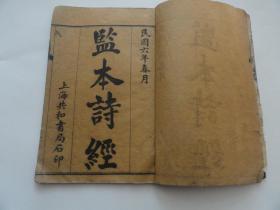 民國六年春月
監本詩經
上海共和書局石印